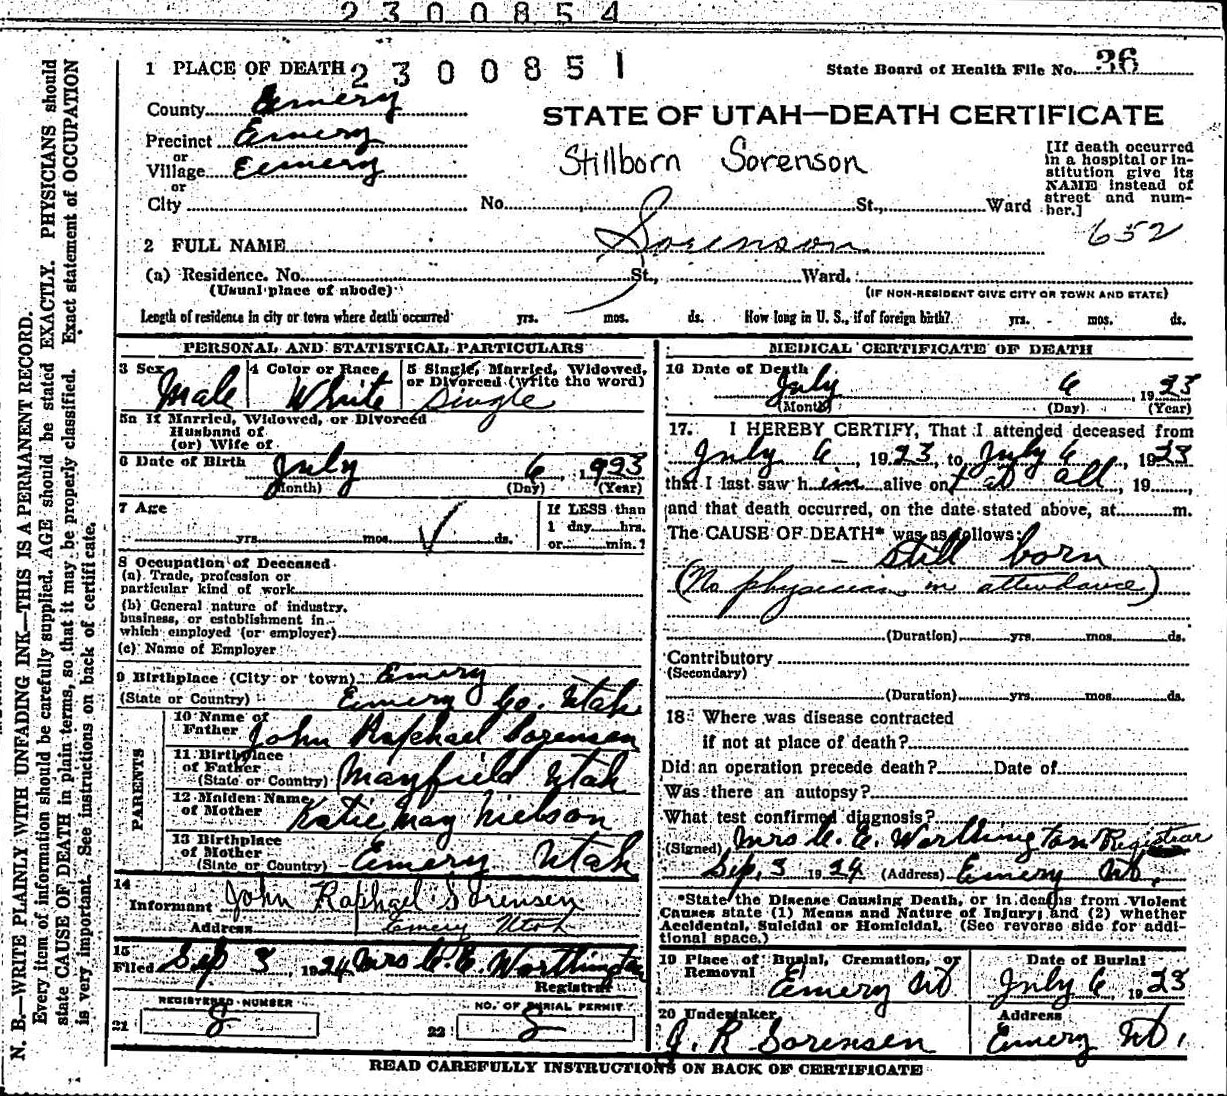 2 3 0 0 8 5 4
1 PLACE OF DEATH 2 3 0 0 8 5 1
State Board of Health File No. 36
County Emery
STATE OF UTAH—DEATH CERTIFICATE
Precinct Emery
Stillborn Sorenson
[If death occurred in a hospital or institution give its NAME instead of street and number.]
or
Village Eemery
or
City No. St., Ward
652
2 FULL NAME Sorenson
(a) Residence. No. St., Ward.
(Usual place of abode)
(IF NON-RESIDENT GIVE CITY OR TOWN AND STATE)
Length of residence in city or town where death occurred yrs. mos. ds. How long in U. S., if of foreign birth? yrs. mos. ds.
PERSONAL AND STATISTICAL PARTICULARS
3 Sex Male
4 Color or Race White
5 Single, Married, Widowed, or Divorced (write the word) Single
5a If Married, Widowed, or Divorced
Husband of
(or) Wife of
6 Date of Birth July 6, 1923
(Month) (Day) (Year)
7 Age
yrs. mos. ds.
If LESS than
1 day hrs.
or min.?
8 Occupation of Deceased
(a) Trade, profession or
particular kind of work
(b) General nature of industry,
business, or establishment in
which employed (or employer)
(c) Name of Employer
9 Birthplace (City or town) Emery
(State or Country) Emery Co. Utah
PARENTS
10 Name of Father John Raphael Sorensen
11 Birthplace of Father
(State or Country) Mayfield Utah
12 Maiden Name of Mother Katie May Nielson
13 Birthplace of Mother
(State or Country) Emery Utah
14
Informant John Raphael Sorensen
Address Emery Utah
15
Filed Sep 3, 1924 Mrs C. E. Worthington
Registrar
REGISTERED NUMBER
21 8
NO. OF BURIAL PERMIT
22 8
MEDICAL CERTIFICATE OF DEATH
16 Date of Death July 6 1923
(Month) (Day) (Year)
17. I HEREBY CERTIFY, That I attended deceased from
July 6, 1923, to July 6, 1923
that I last saw him alive on at all, 19
and that death occurred, on the date stated above, at m.
The CAUSE OF DEATH* was as follows:
still born
(No physician in attendance)
(Duration) yrs. mos. ds.
Contributory
(Secondary)
(Duration) yrs. mos. ds.
18 Where was disease contracted
if not at place of death?
Did an operation precede death? Date of
Was there an autopsy?
What test confirmed diagnosis?
(Signed) Mrs C. E. Worthington Registrar
Sep, 3 1924 (Address) Emery Ut.
*State the Disease Causing Death, or in deaths from Violent
Causes state (1) Means and Nature of Injury; and (2) whether
Accidental, Suicidal or Homicidal. (See reverse side for additional space.)
19 Place of Burial, Cremation, or Removal Emery Ut
Date of Burial July 6 1923
20 Undertaker J. R Sorensen
Address Emery Ut.
READ CAREFULLY INSTRUCTIONS ON BACK OF CERTIFICATE
N. B.—WRITE PLAINLY WITH UNFADING INK—THIS IS A PERMANENT RECORD.
Every item of information should be carefully supplied. AGE should be stated EXACTLY. PHYSICIANS should
state CAUSE OF DEATH in plain terms, so that it may be properly classified. Exact statement of OCCUPATION
is very important. See instructions on back of certificate.